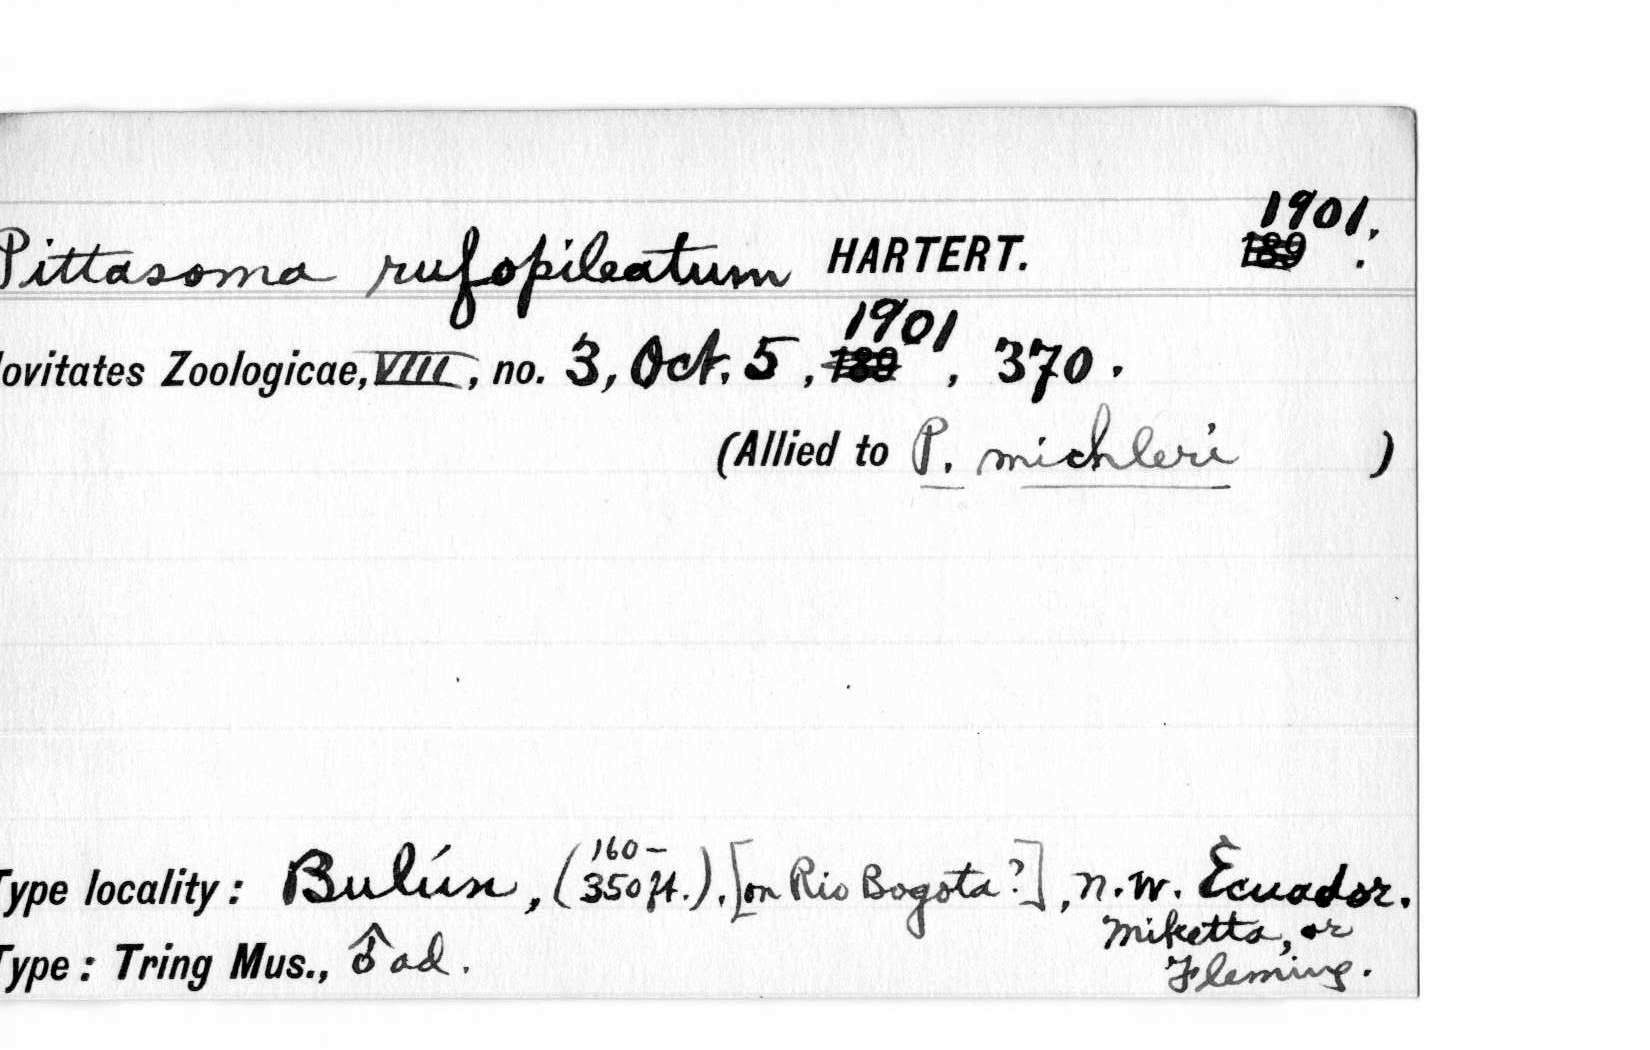 Pittasoma rufopileatum HARTERT. 1901.
189 .
ovitates Zoologicae, VIII, no. 3, Oct. 5, 1901, 370.
(Allied to P. michleri )
Type locality: Bulún, (160-350 ft.), [on Rio Bogota?], n.w. Ecuador.
Miketta, or
Type: Tring Mus., ♂ ad. Fleming.